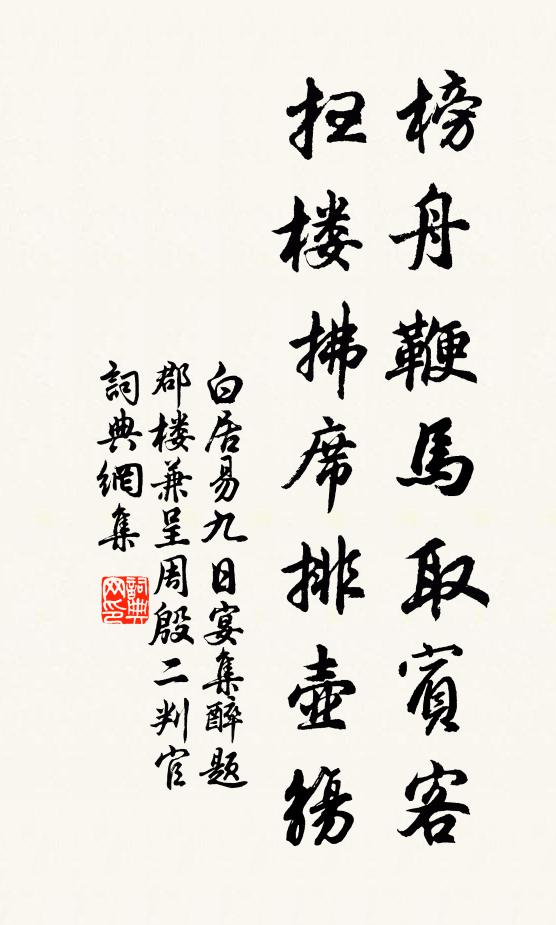 榜舟鞭馬取賓客
扫楼拂席排壺觴
白居易九日宴集醉题
郡楼兼呈周殷二判官
詞典網集
詞典
网印